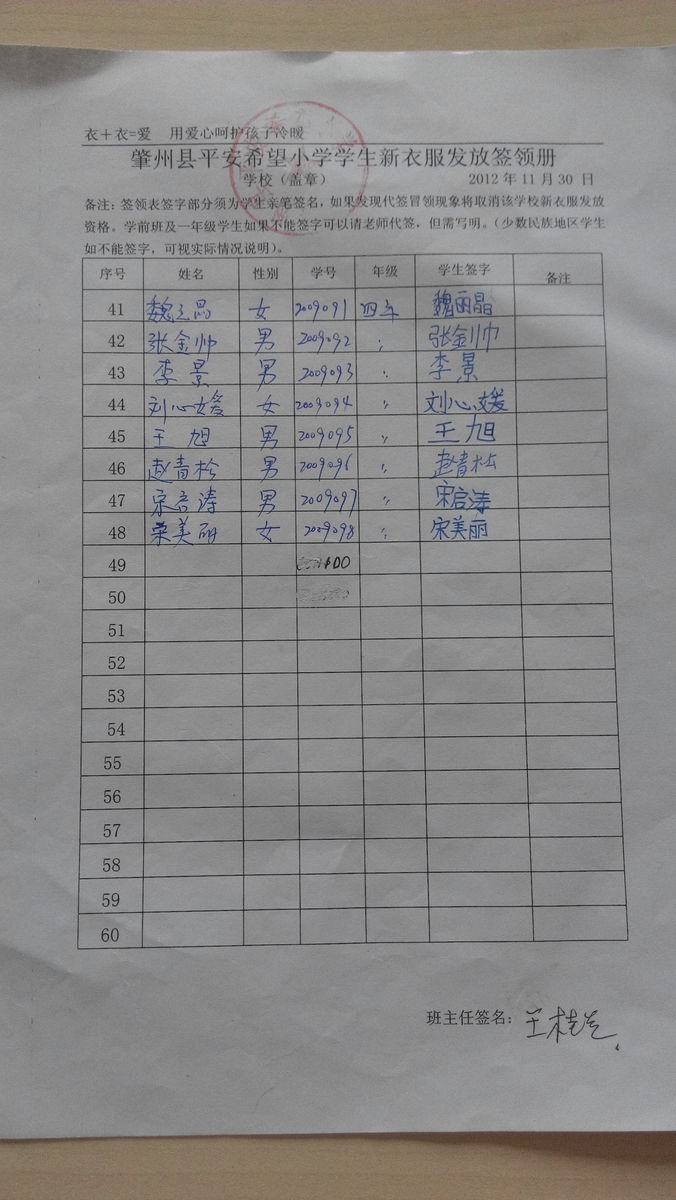 衣＋衣=爱 用爱心呵护孩子冷暖
肇州县平安希望小学学生新衣服发放签领册
学校（盖章） 2012 年 11 月 30 日
备注：签领表签字部分须为学生亲笔签名，如果发现代签冒领现象将取消该学校新衣服发放
资格。学前班及一年级学生如果不能签字可以请老师代签，但需写明。（少数民族地区学生
如不能签字，可视实际情况说明）。
序号 姓名 性别 学号 年级 学生签字 备注
41 魏立晶 女 2009091 四年 魏丽晶
42 张金帅 男 2009092 〃 张金帅
43 李景 男 2009093 〃 李景
44 刘心媛 女 2009094 〃 刘心媛
45 王旭 男 2009095 〃 王旭
46 赵青松 男 2009096 〃 赵青松
47 宋启涛 男 2009097 〃 宋启涛
48 宋美丽 女 2009098 〃 宋美丽
49
50
51
52
53
54
55
56
57
58
59
60
班主任签名：王桂